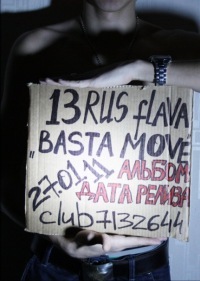 13 RUS fLAVA
„BASTA MOVE
27.01.11 АЛЬБОМ
ДАТА РЕЛИЗА
club7132644